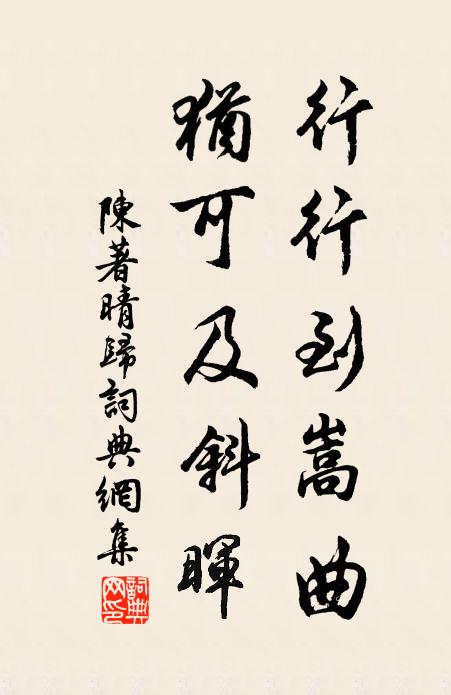 行行到嵩曲
猶可及斜暉
陳著晴歸詞典網集
詞典網印